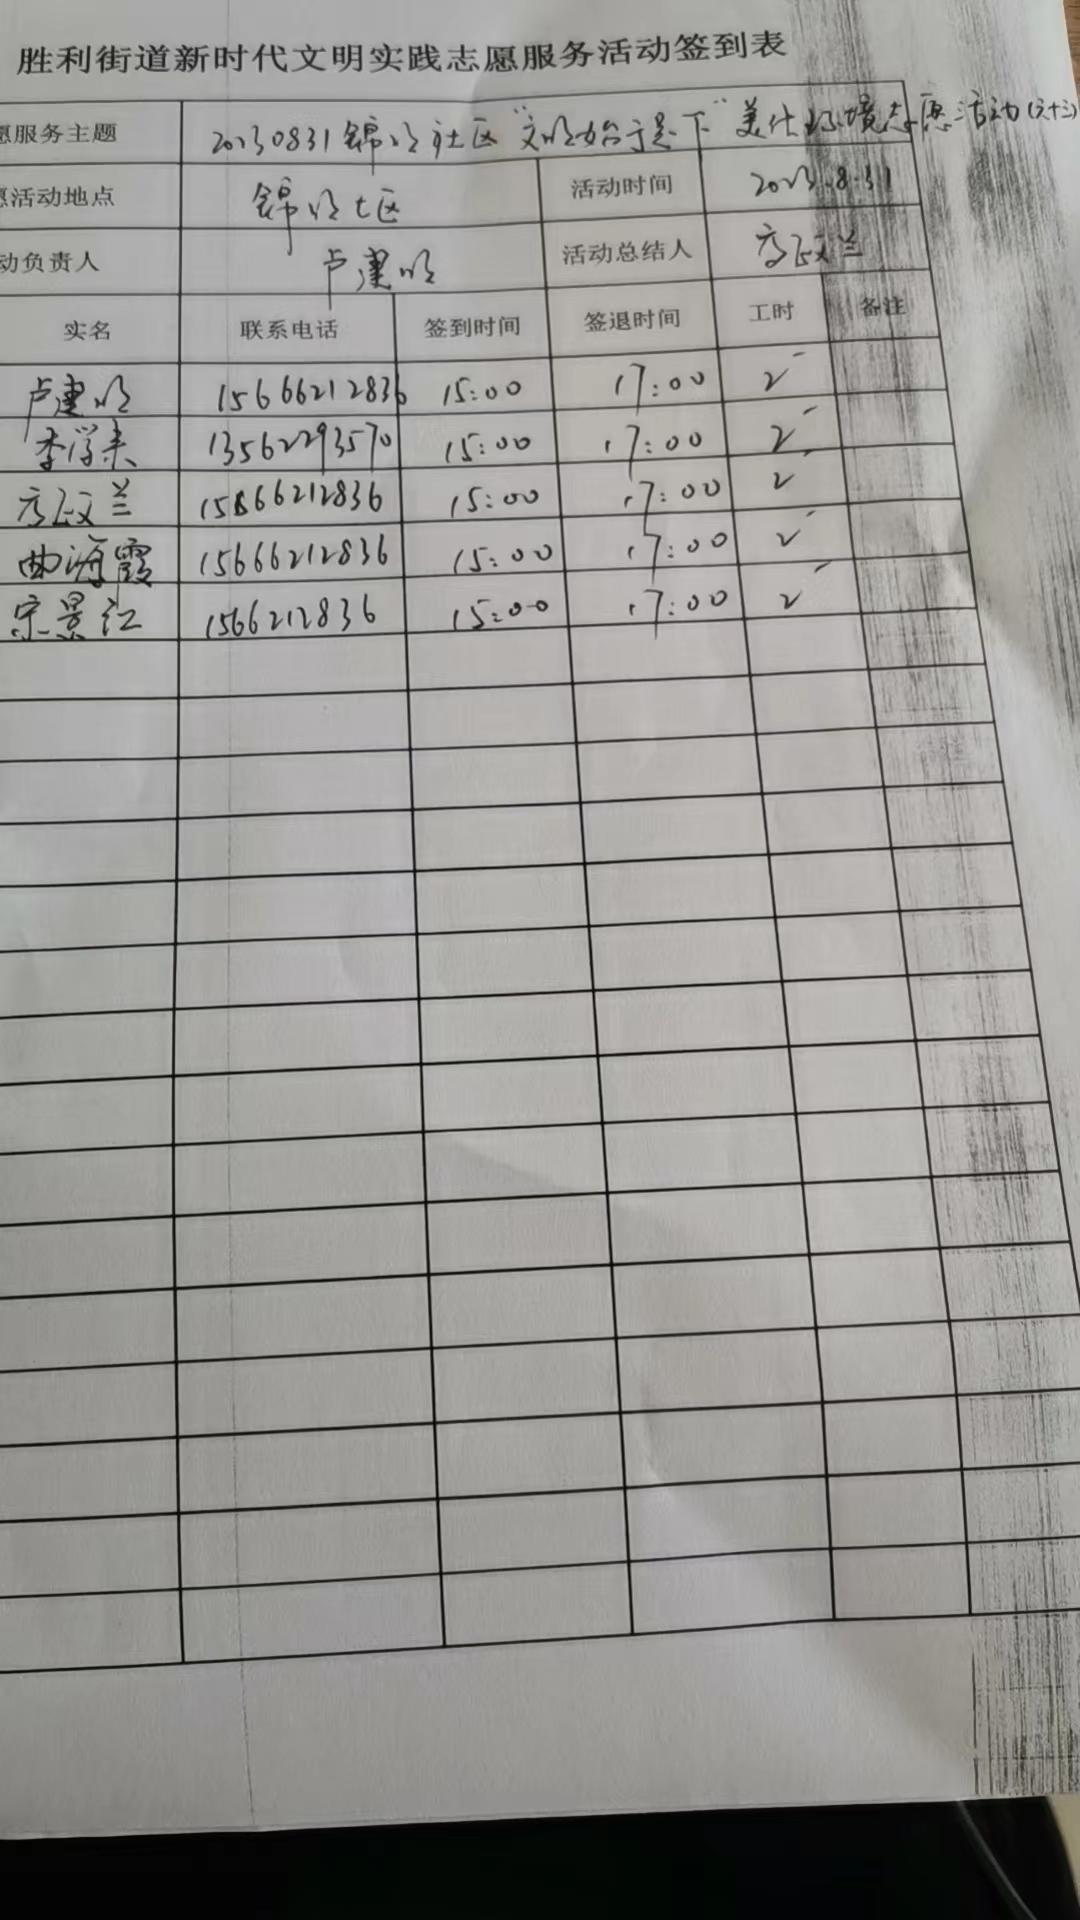 胜利街道新时代文明实践志愿服务活动签到表
愿服务主题 20230831锦明社区“文明始于足下”美化环境志愿活动(六十三)
愿活动地点 锦明社区 活动时间 2023.8.31
动负责人 卢建明 活动总结人 兰
实名 联系电话 签到时间 签退时间 工时 备注
卢建明 15666212836 15:00 17:00 2
李学来 13562293570 15:00 17:00 2
兰 15666212836 15:00 17:00 2
曲海霞 15666212836 15:00 17:00 2
宋景江 1566212836 15:00 17:00 2